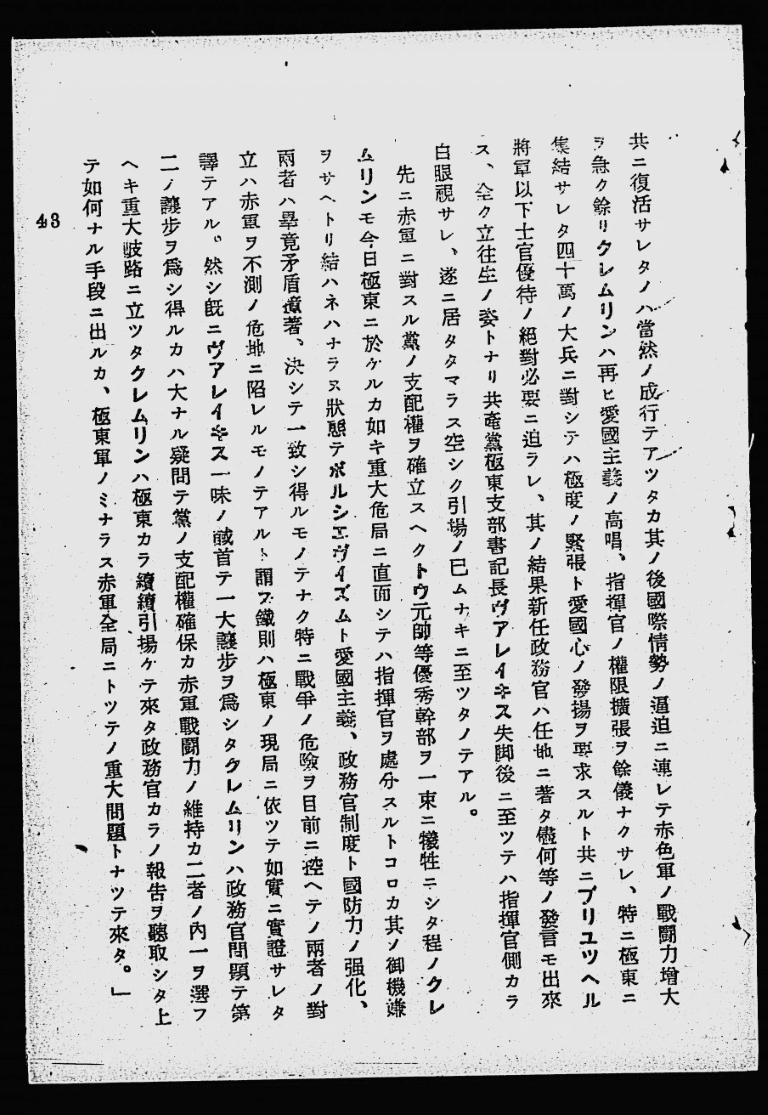 共ニ復活サレタノハ當然ノ成行テアツタカ其ノ後國際情勢ノ逼迫ニ連レテ赤色軍ノ戰鬪力增大
ヲ急ク餘リクレムリンハ再ヒ愛國主義ノ高唱、指揮官ノ權限擴張ヲ餘儀ナクサレ、特ニ極東ニ
集結サレタ四十萬ノ大兵ニ對シテハ極度ノ緊張ト愛國心ノ發揚ヲ要求スルト共ニブリユツヘル
將軍以下士官優待ノ絕對必要ニ迫ラレ、其ノ結果新任政務官ハ任地ニ著タ儘何等ノ發言モ出來
ス、全ク立往生ノ姿トナリ共產黨極東支部書記長ヴアレイキス失脚後ニ至ツテハ指揮官側カラ
白眼視サレ、遂ニ居タタマラス空シク引揚ノ已ムナキニ至ツタノテアル。
先ニ赤軍ニ對スル黨ノ支配權ヲ確立スヘクトウ元帥等優秀幹部ヲ一束ニ犧牲ニシタ程ノクレ
ムリンモ今日極東ニ於ケルカ如キ重大危局ニ直面シテハ指揮官ヲ處分スルトコロカ其ノ御機嫌
ヲサヘトリ結ハネハナラヌ狀態テボルシエヴイズムト愛國主義、政務官制度ト國防力ノ强化、
兩者ハ畢竟矛盾撞著、決シテ一致シ得ルモノテナク特ニ戰爭ノ危險ヲ目前ニ控ヘテノ兩者ノ對
立ハ赤軍ヲ不測ノ危地ニ陷レルモノテアルト謂フ鐵則ハ極東ノ現局ニ依ツテ如實ニ實證サレタ
譯テアル。然シ既ニヴアレイキス一味ノ馘首テ一大讓步ヲ爲シタクレムリンハ政務官問題テ第
二ノ讓步ヲ爲シ得ルカハ大ナル疑問テ黨ノ支配權確保カ赤軍戰鬪力ノ維持カ二者ノ內一ヲ選フ
ヘキ重大岐路ニ立ツタクレムリンハ極東カラ續續引揚ケテ來タ政務官カラノ報吿ヲ聽取シタ上
テ如何ナル手段ニ出ルカ、極東軍ノミナラス赤軍全局ニトツテノ重大問題トナツテ來タ。」
43